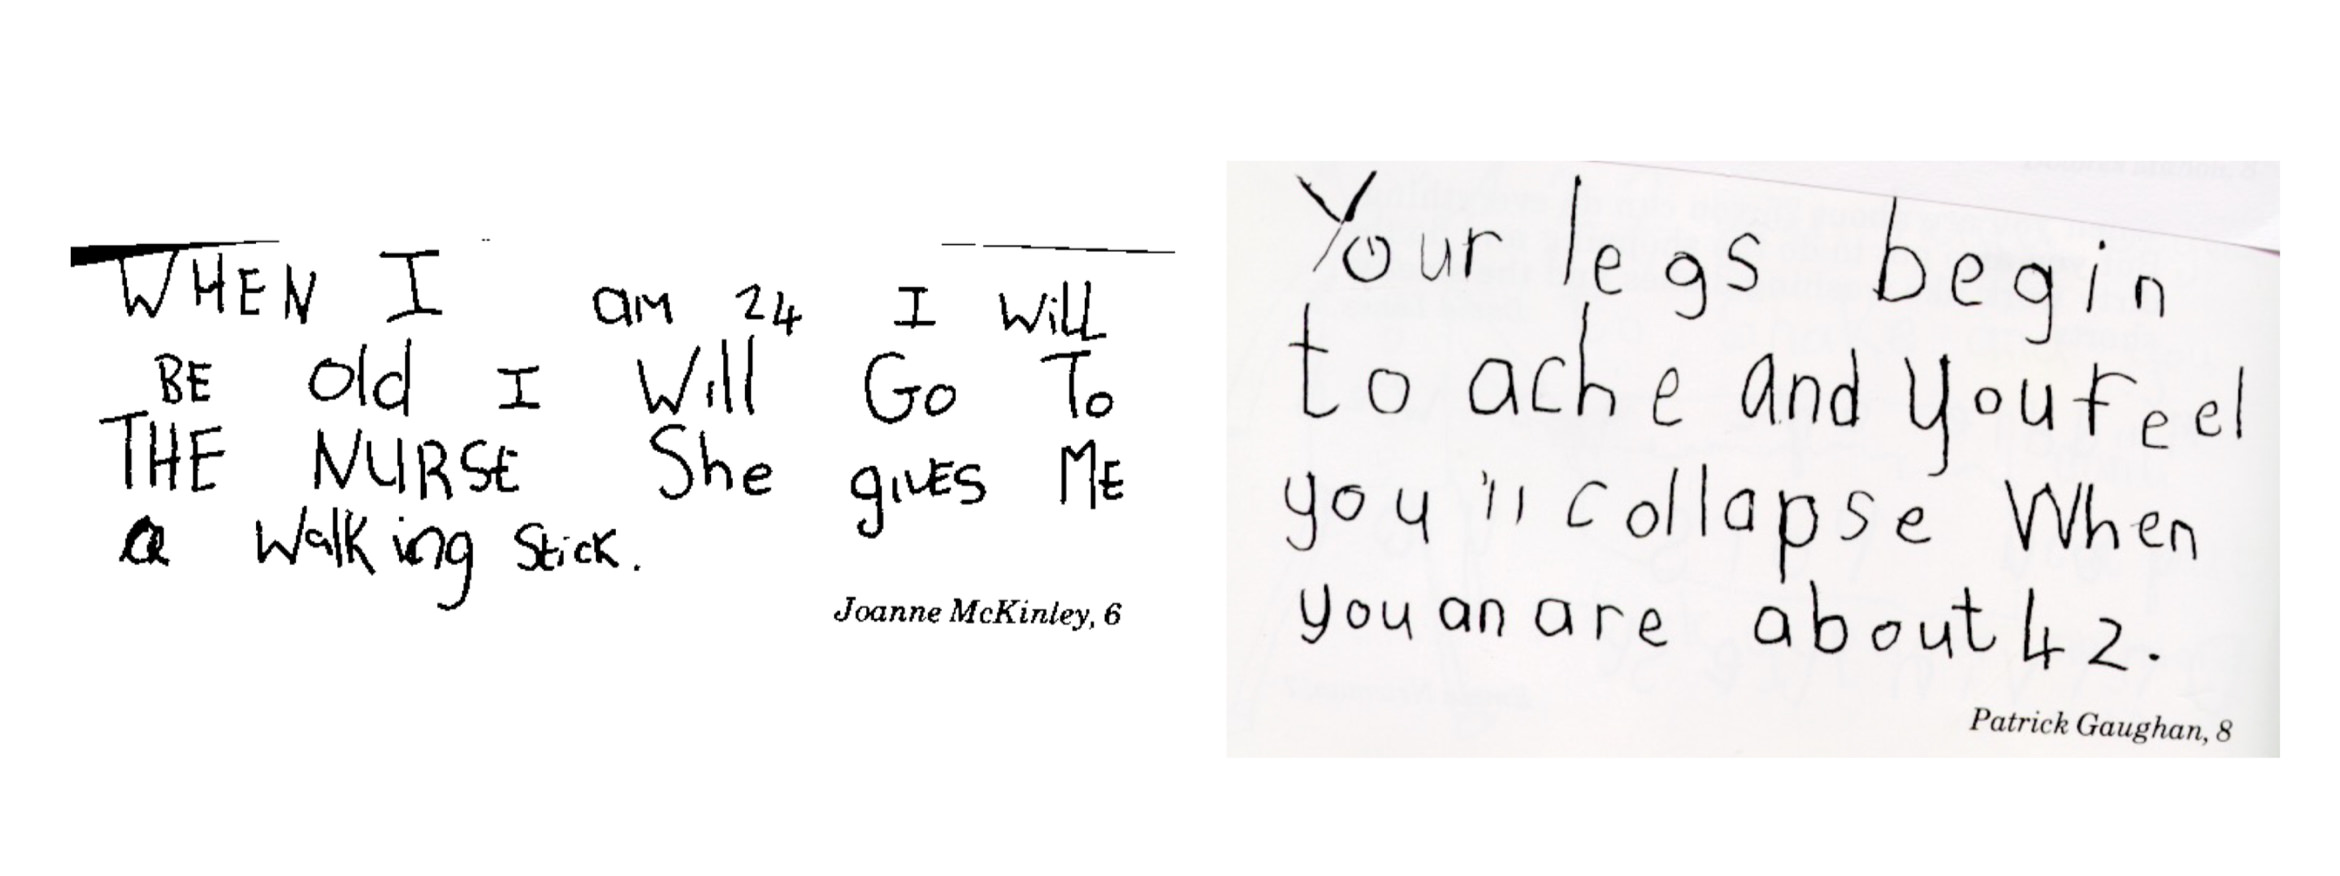 WHEN I am 24 I will
BE old I Will Go To
THE NURSE She gives ME
a Walking Stick.
Joanne McKinley, 6
Your legs begin
to ache and you feel
you'll collapse When
you an are about 42.
Patrick Gaughan, 8